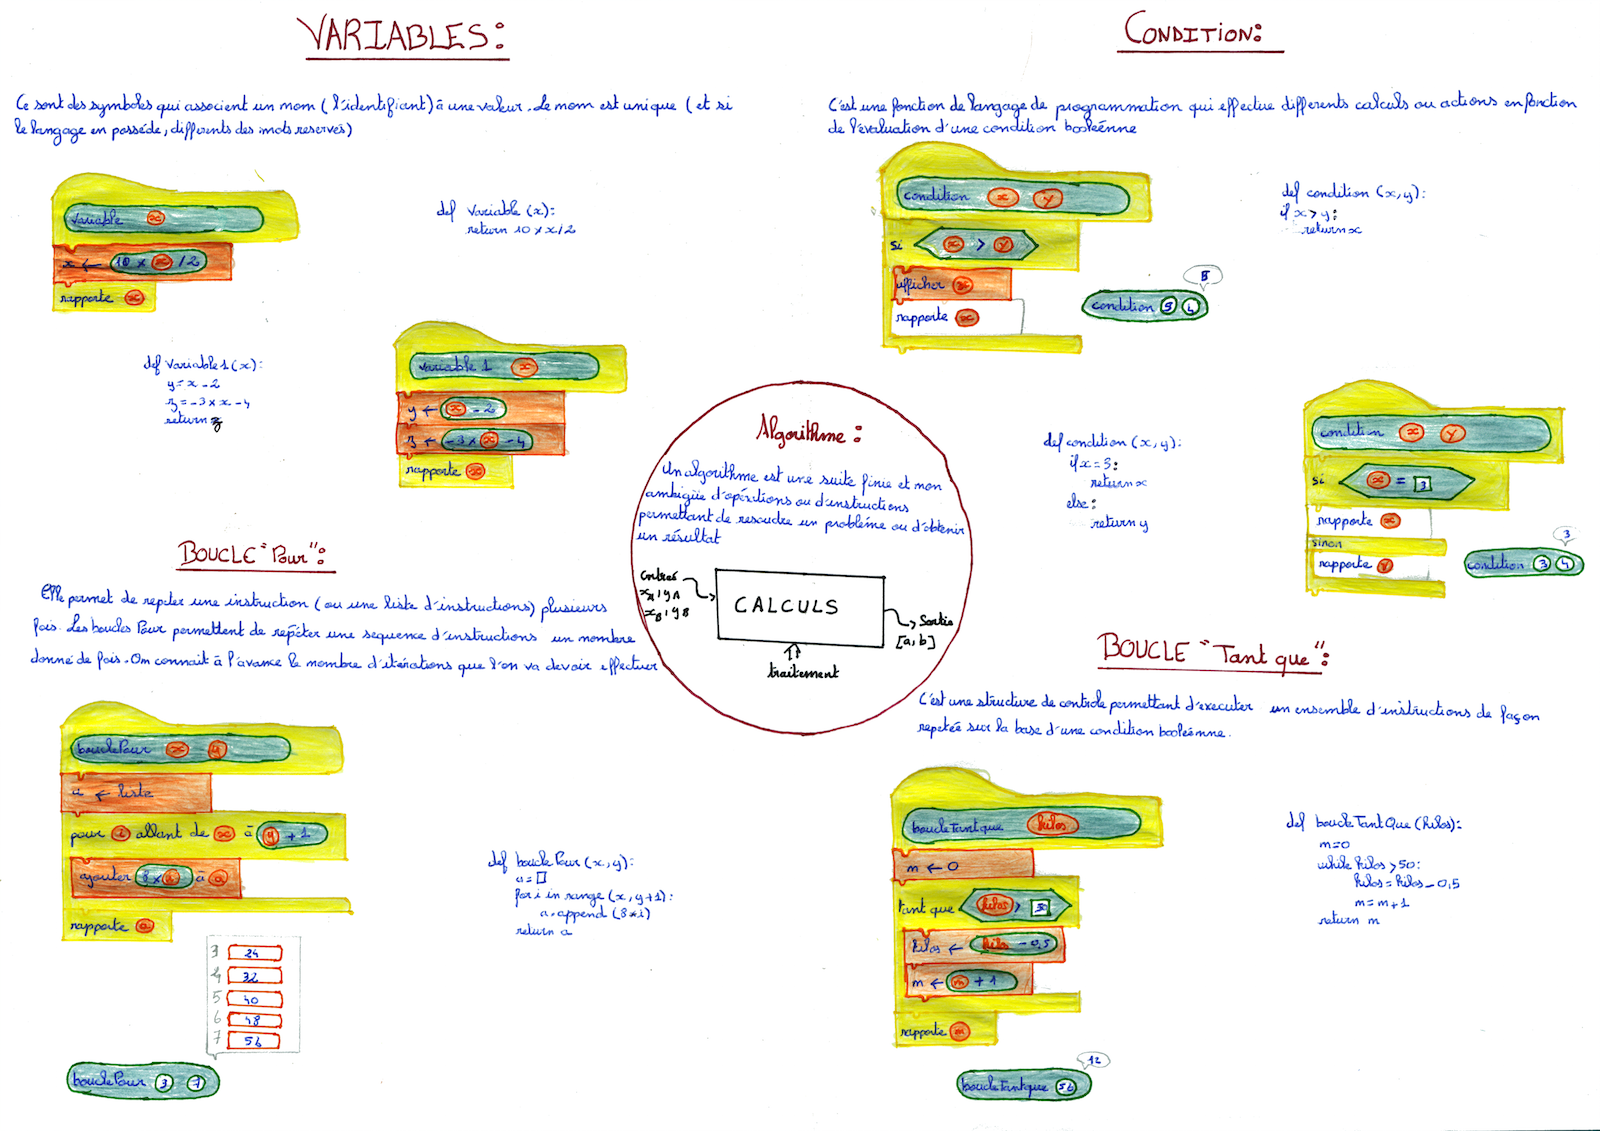 VARIABLES:
Ce sont des symboles qui associent un nom ( l'identifiant) à une valeur. Le nom est unique ( et si
le langage en posséde, differents des mots reservés)
variable x
x ← 10 * x / 2
rapporte x
def variable (x):
return 10 * x / 2
def variable1 (x):
y = x - 2
z = -3 * x - 4
return z
variable 1 x
y ← x - 2
z ← -3 * x - 4
rapporte x
BOUCLE "Pour":
Elle permet de repeter une instruction ( ou une liste d'instructions) plusieurs
fois. Les boucles Pour permettent de répéter une sequence d'instructions un nombre
donné de fois. On connait à l'avance le nombre d'itérations que l'on va devoir effectuer
bouclePour x y
a ← liste
pour i allant de x à y + 1
ajouter 8 * i à a
rapporte a
3 24
4 32
5 40
6 48
7 56
bouclePour 3 7
def bouclePour (x, y):
a = []
for i in range (x, y+1):
a.append (8*i)
return a
Algorithme:
Un algorithme est une suite finie et non
ambigüe d'opérations ou d'instructions
permettant de resoudre un probléme ou d'obtenir
un résultat
Entrées
xA ; yA
xB ; yB
CALCULS
Sortie
[a, b]
traitement
CONDITION:
C'est une fonction de langage de programmation qui effectue differents calculs ou actions en fonction
de l'évaluation d'une condition booléenne
condition x y
si x > y
afficher x
rapporte x
5
condition 5 4
def condition (x, y):
if x > y:
return x
def condition (x, y):
if x = 3:
return x
else:
return y
condition x y
si x = 3
rapporte x
sinon
rapporte y
3
condition 3 4
BOUCLE "Tant que":
C'est une structure de controle permettant d'executer un ensemble d'instructions de façon
repetée sur la base d'une condition booléenne.
boucleTantque kilos
m ← 0
tant que kilos > 50
kilos ← kilos - 0,5
m ← m + 1
rapporte m
12
boucleTantque 56
def boucleTantQue (kilos):
m=0
while kilos > 50:
kilos = kilos - 0,5
m = m + 1
return m